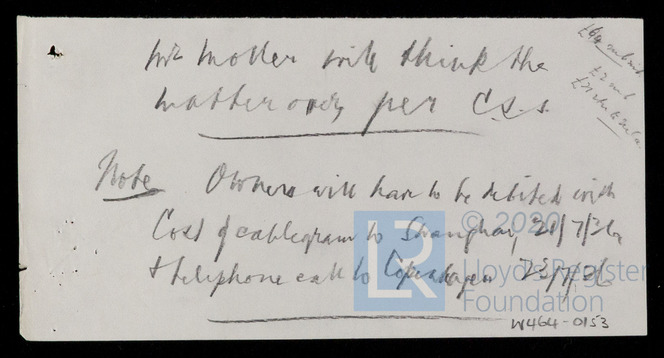 Mr Moller will think the
matter over, per C.S.S.
Note Owners will have to be debited with
Cost of cablegram to Shanghai, 21/7/36
& telephone call to Copenhagen 23/7/36
© 2020
LR
Lloyd's Register
Foundation
W464-0153